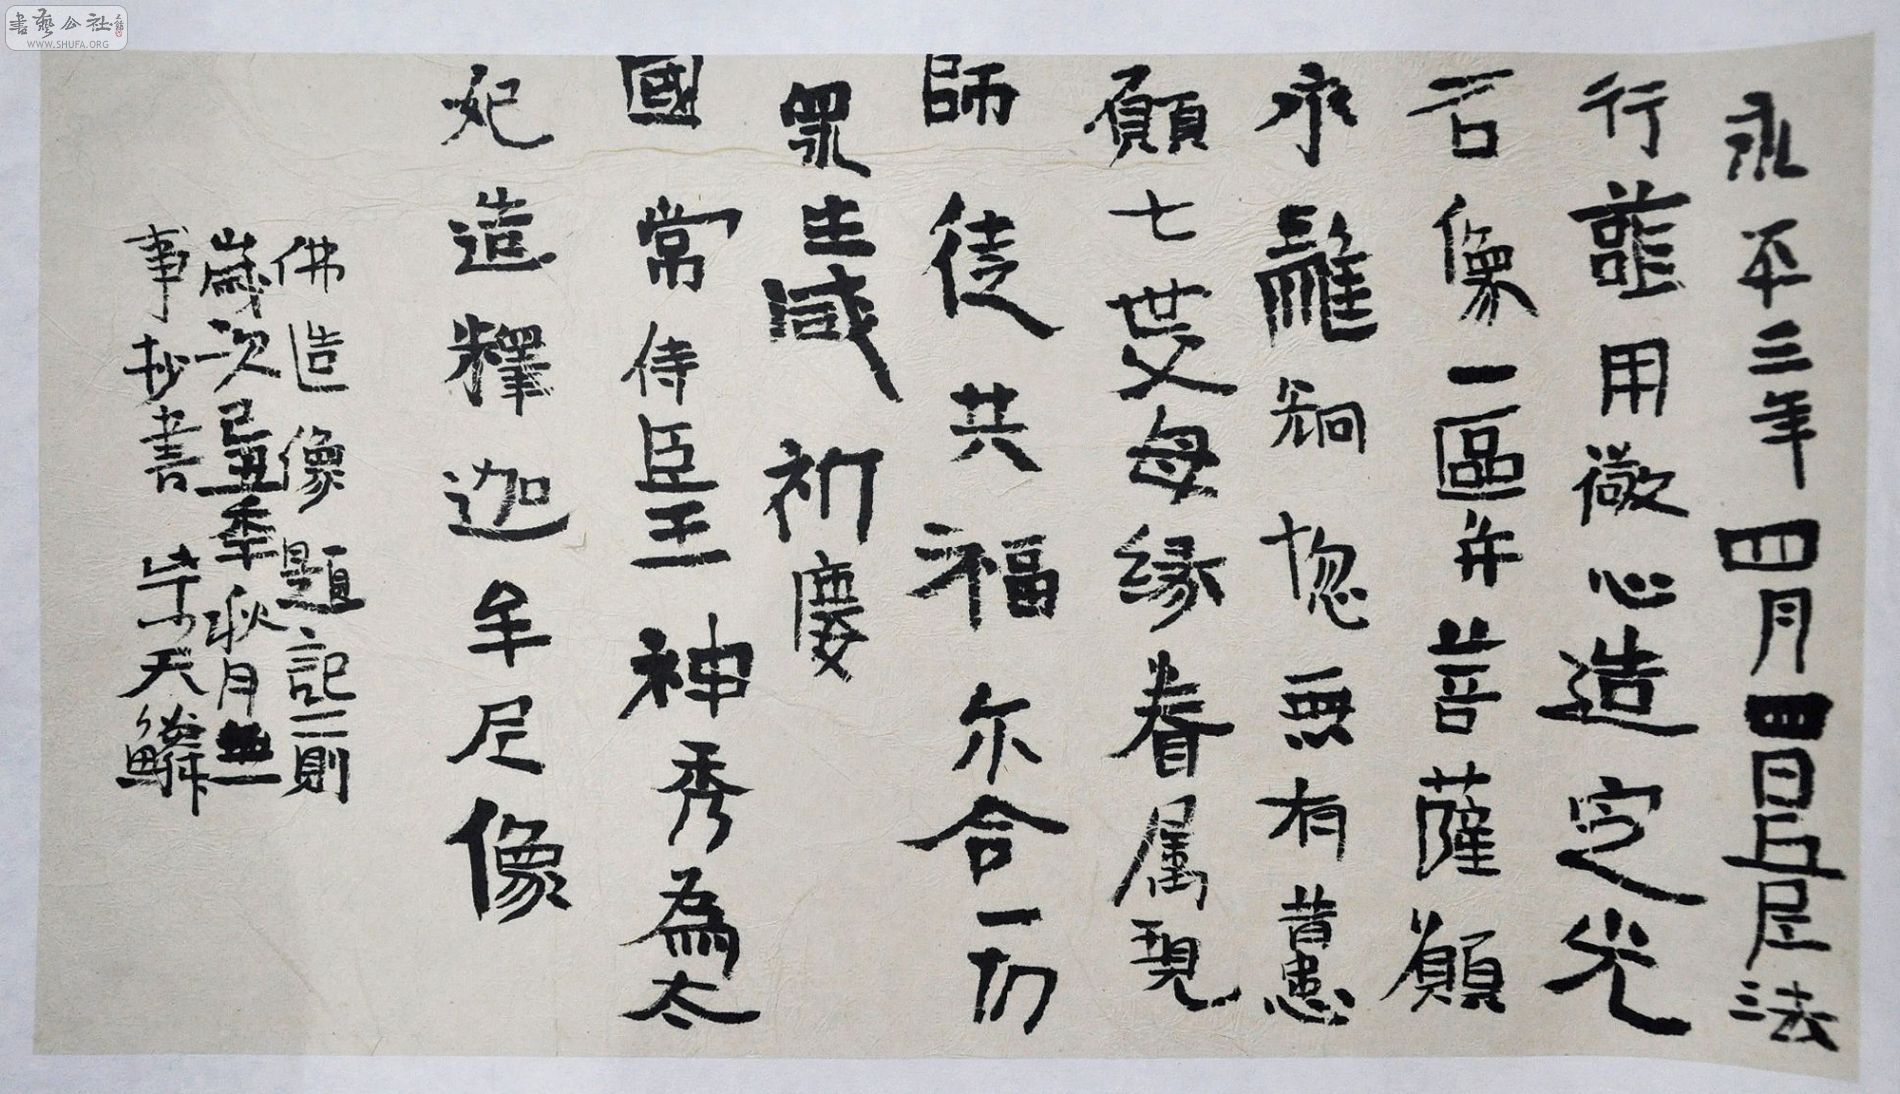 永平三年四月四日比丘尼法
行謹用微心造定光
石像一區并菩薩願
永離煩惚無有昔患
願七世父母緣眷属現
師徒共福尔合一切
眾生咸祈慶
國常侍臣王神秀為太
妃造釋迦牟尼像
佛造像題記二則
嵗次己丑季秋月無
事抄書 天
書藝公社
WWW.SHUFA.ORG